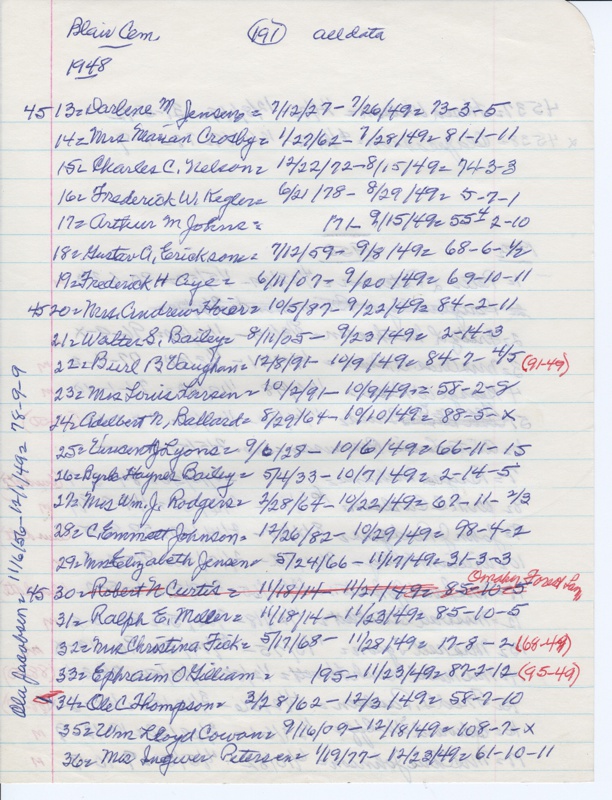 Blair Cem. (191) all data
1948
45 13 = Darlene M Jensen = 7/12/27 - 7/26/49 = 73-3-5
14 = Mrs Marian Crosby = 1/27/62 - 7/28/49 = 81-1-11
15 = Charles C. Nelson = 12/22/72 - 8/15/49 = 74-3-3
16 = Frederick W. Kegler = 6/21/78 - 8/29/49 = 5-7-1
17 = Arthur M Johns = 171 - 9/15/49 = 55 4 2-10
18 = Gustav A, Erickson = 7/12/59 - 9/8/49 = 68-6-1/2
19 = Frederick H Aye = 6/11/07 - 9/20/49 = 69-10-11
45 20 = Mrs. Andrew Hoier = 10/5/87 - 9/22/49 = 84-2-11
21 = Walter S, Bailey = 8/11/05 - 9/23/49 = 2-14-3
22 = Burl B Vaughan = 12/8/91 - 10/9/49 = 84-7-4/5 (91-49)
23 = Mrs Louis Larsen = 10/2/91 - 10/9/49 = 58-2-8
24 = Adelbert N, Ballard = 8/29/64 - 10/10/49 = 88-5-x
25 = Vincent J Lyons = 9/6/28 - 10/6/49 = 66-11-15
26 = Byrle Haynes Bailey = 5/4/33 - 10/7/49 = 2-14-5
27 = Mrs Wm. J. Rodgers = 2/28/64 - 10/22/49 = 67-11-2/3
28 = C. Emmett Johnson = 12/26/82 - 10/29/49 = 98-4-2
29 = Mrs Elizabeth Jensen 5/24/66 - 11/17/49 = 31-3-3
Omaha Forest Lawn
45 30 = Robert N Curtis = 11/18/14 - 11/21/49 = 85-10-5
31 = Ralph E. Moller = 11/18/14 - 11/23/49 = 85-10-5
32 = Mrs Christina Fick = 5/17/68 - 11/28/49 = 17-8-2 (68-49)
33 = Ephraim O Gilliam = 195 - 11/23/49 = 87-2-12 (95-49)
34 = Ole C Thompson = 3/28/62 - 12/3/49 = 58-7-10
35 = Wm Lloyd Cowan = 9/16/09 - 12/18/49 = 108-7-x
36 = Mrs Ingwer Petersen = 1/19/77 - 12/23/49 = 61-10-11
Ole Jacobsen = 11/6/56 - 12/1/49 = 78-9-9